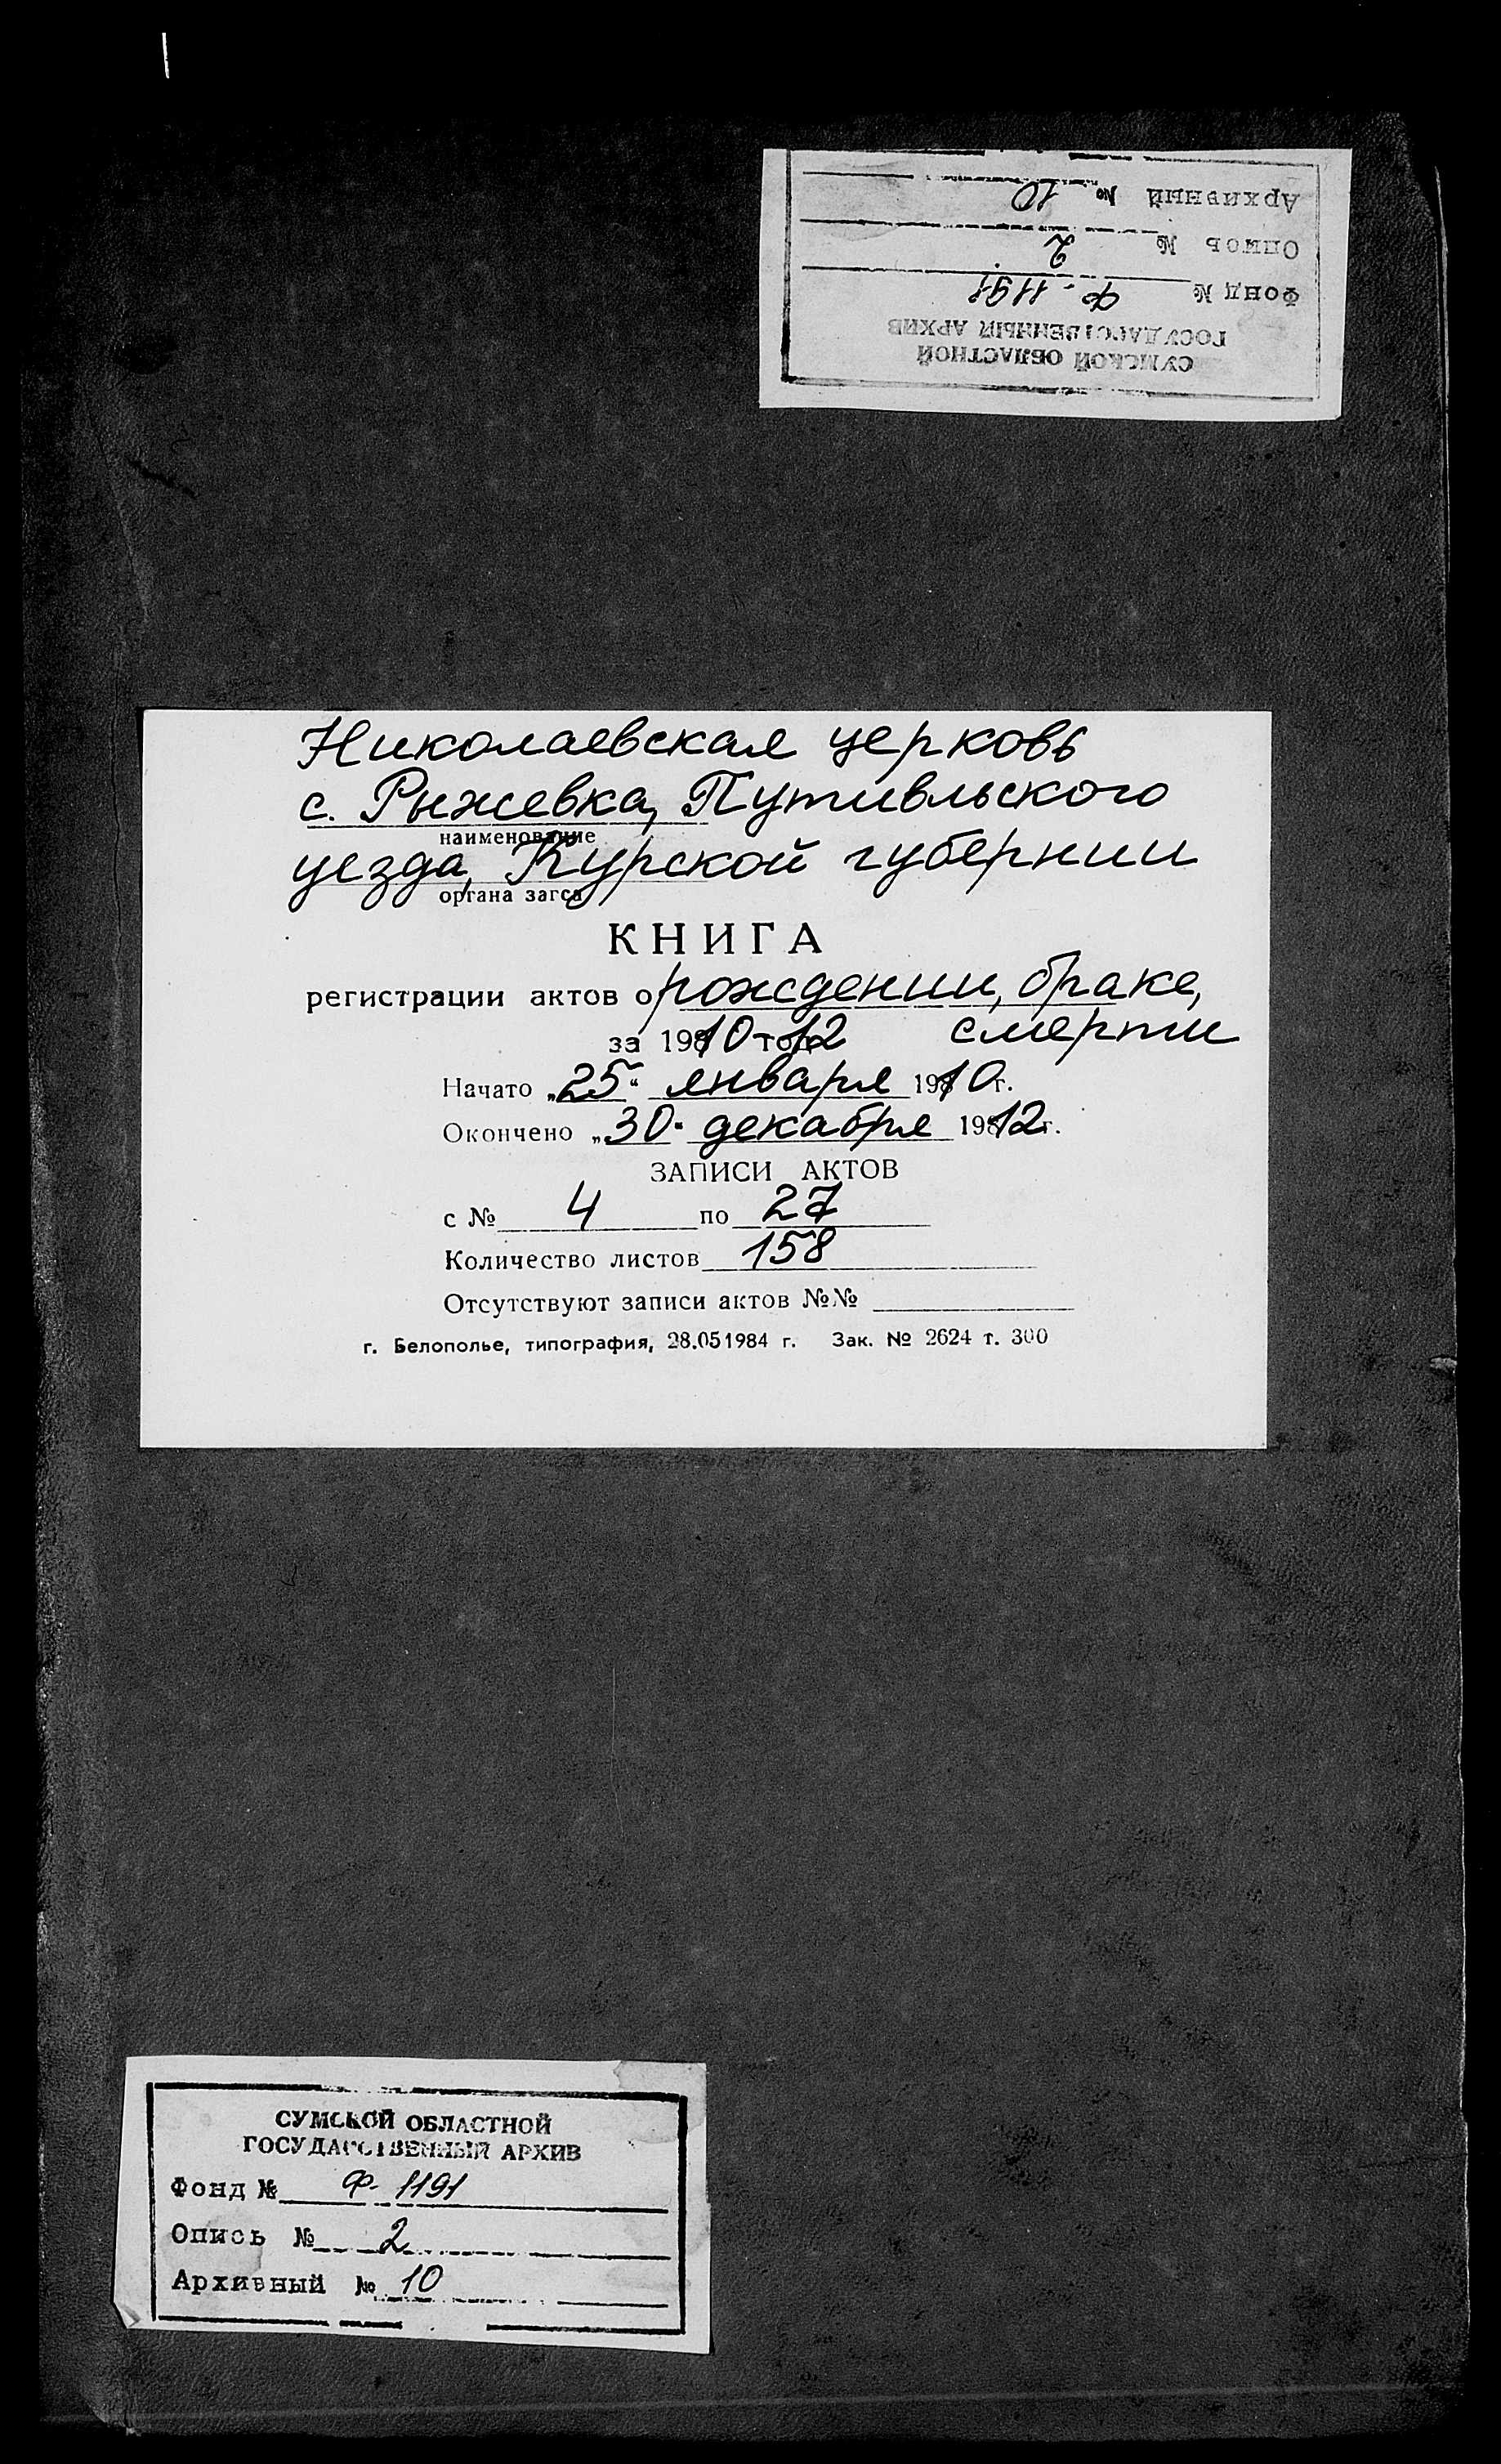 Архивный № 10
Опись № 2
Фонд № Ф-1191
ГОСУДАРСТВЕННЫЙ АРХИВ
СУМСКОЙ ОБЛАСТНОЙ
Николаевская церковь
с. Рыжевка, Путивльского
наименование
уезда, Курской губернии
органа загса
КНИГА
регистрации актов о рождении, браке,
смерти
за 1910-12
Начато „25" января 1910 г.
Окончено „30" декабря 1912 г.
ЗАПИСИ АКТОВ
с № 4 по 27
Количество листов 158
Отсутствуют записи актов №№
г. Белополье, типография, 28.051984 г. Зак. № 2624 т. 300
СУМСКОЙ ОБЛАСТНОЙ
ГОСУДАРСТВЕННЫЙ АРХИВ
Фонд № Ф-1191
Опись № 2
Архивный № 10